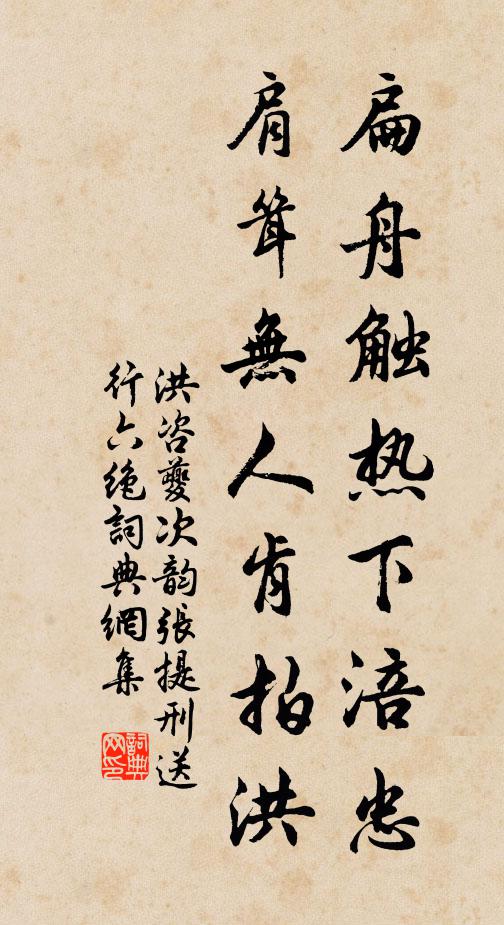 扁舟触热下涪忠
肩耸無人肯拍洪
洪咨夔次韵張提刑送
行六绝詞典網集
詞典網印